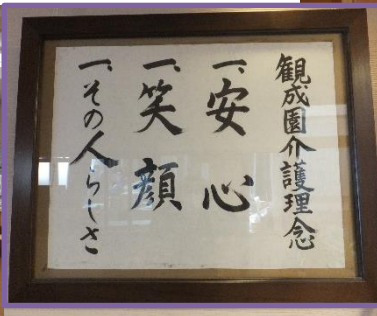 観成園介護理念
一、安心
一、笑顔
一、その人らしさ